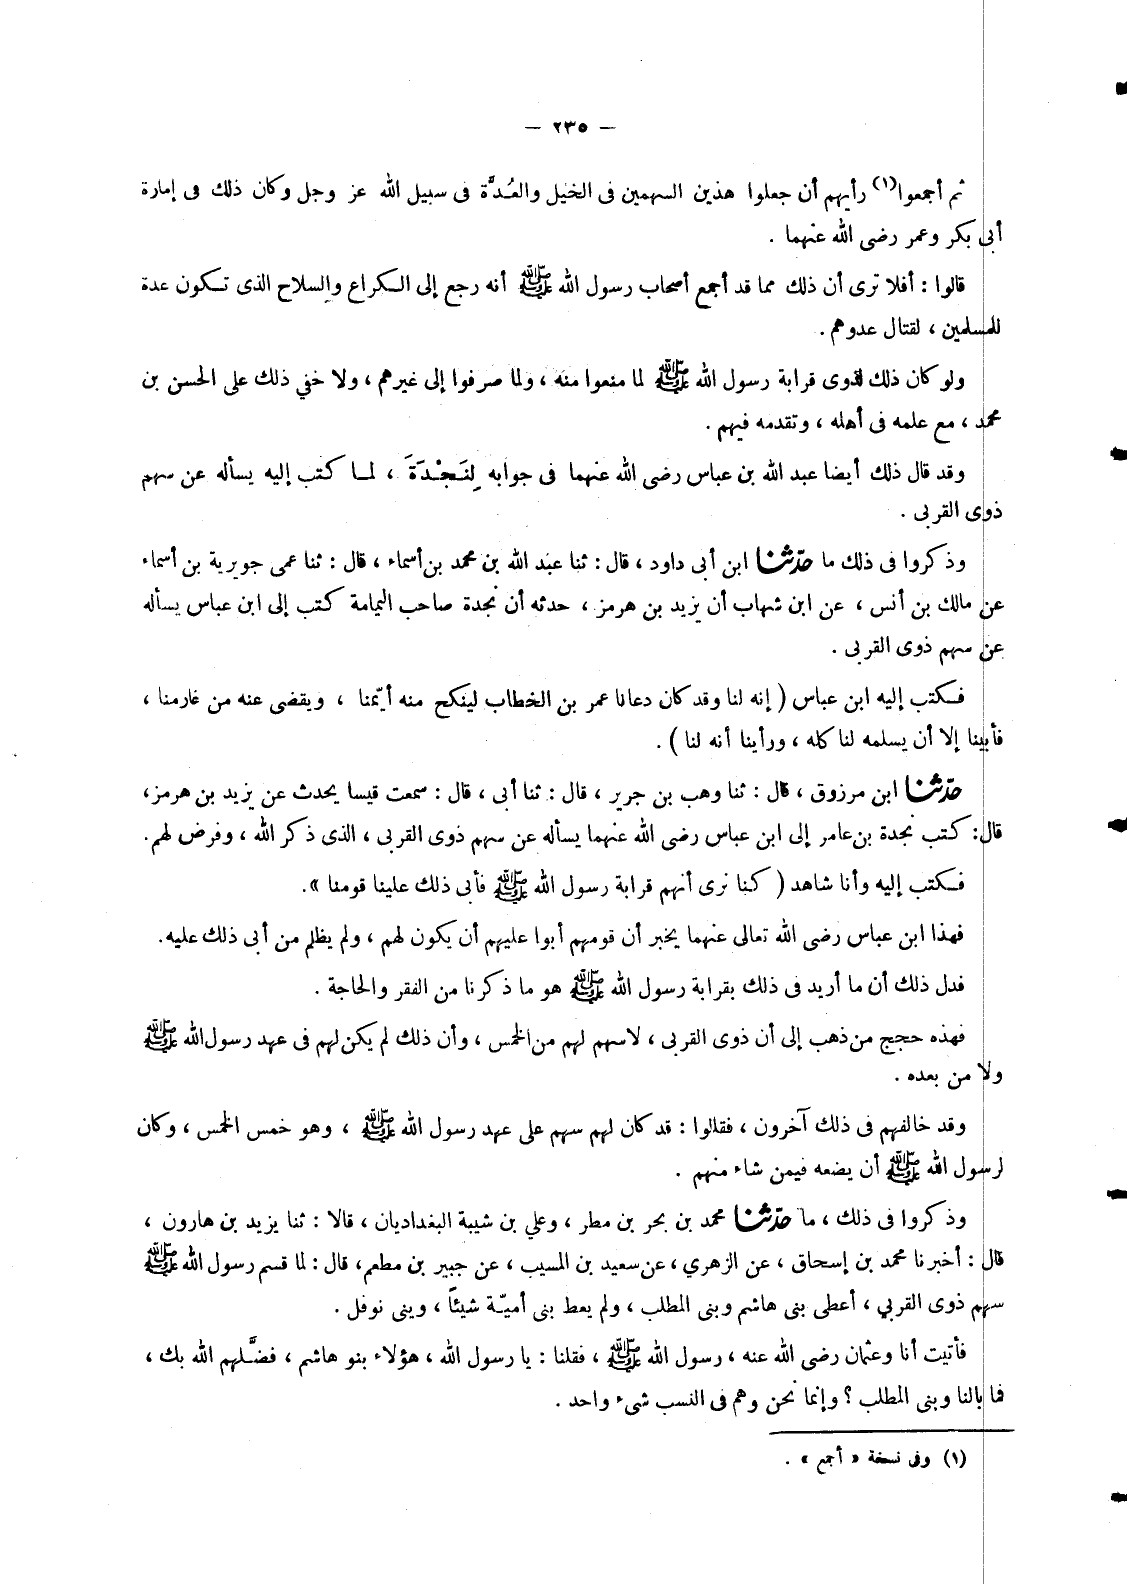 — ٢٣٥ —
ثم أجمعوا(١) رأيهم أن جعلوا هذين السهمين فى الخيل والعُدَّة فى سبيل الله عز وجل وكان ذلك فى إمارة
أبى بكر وعمر رضى الله عنهما .
قالوا : أفلا ترى أن ذلك مما قد أجمع أصحاب رسول الله ﷺ أنه رجع إلى الكراع والسلاح الذى تكون عدة
للمسلمين ، لقتال عدوهم .
ولو كان ذلك لذوى قرابة رسول الله ﷺ لما منعوا منه ، ولما صرفوا إلى غيرهم ، ولا خفي ذلك على الحسن بن
محمد ، مع علمه فى أهله ، وتقدمه فيهم .
وقد قال ذلك أيضا عبد الله بن عباس رضى الله عنهما فى جوابه لِنَجْدَةَ ، لما كتب إليه يسأله عن سهم
ذوى القربى .
وذكروا فى ذلك ما حدّثنا ابن أبى داود ، قال : ثنا عبد الله بن محمد بن أسماء ، قال : ثنا عمى جويرية بن أسماء
عن مالك بن أنس ، عن ابن شهاب أن يزيد بن هرمز ، حدثه أن نجدة صاحب اليمامة كتب إلى ابن عباس يسأله
عن سهم ذوى القربى .
فكتب إليه ابن عباس ( إنه لنا وقد كان دعانا عمر بن الخطاب لينكح منه أيّمنا ، ويقضى عنه من غارمنا ،
فأبينا إلا أن يسلمه لنا كله ، ورأينا أنه لنا ) .
حدّثنا ابن مرزوق ، قال : ثنا وهب بن جرير ، قال : ثنا أبى ، قال : سمعت قيسا يحدث عن يزيد بن هرمز ،
قال : كتب نجدة بن عامر إلى ابن عباس رضى الله عنهما يسأله عن سهم ذوى القربى ، الذى ذكر الله ، وفرض لهم .
فكتب إليه وأنا شاهد ( كنا نرى أنهم قرابة رسول الله ﷺ فأبى ذلك علينا قومنا » .
فهذا ابن عباس رضى الله تعالى عنهما يخبر أن قومهم أبوا عليهم أن يكون لهم ، ولم يظلم من أبى ذلك عليه .
فدل ذلك أن ما أريد فى ذلك بقرابة رسول الله ﷺ هو ما ذكرنا من الفقر والحاجة .
فهذه حجج من ذهب إلى أن ذوى القربى ، لاسهم لهم من الخمس ، وأن ذلك لم يكن لهم فى عهد رسول الله ﷺ
ولا من بعده .
وقد خالفهم فى ذلك آخرون ، فقالوا : قد كان لهم سهم على عهد رسول الله ﷺ ، وهو خمس الخمس ، وكان
لرسول الله ﷺ أن يضعه فيمن شاء منهم .
وذكروا فى ذلك ، ما حدّثنا محمد بن بحر بن مطر ، وعلي بن شيبة البغداديان ، قالا : ثنا يزيد بن هارون ،
قال : أخبرنا محمد بن إسحاق ، عن الزهري ، عن سعيد بن المسيب ، عن جبير بن مطعم ، قال : لما قسم رسول الله ﷺ
سهم ذوى القربي ، أعطى بنى هاشم وبنى المطلب ، ولم يعط بنى أميّة شيئاً ، وبنى نوفل .
فأتيت أنا وعثمان رضى الله عنه ، رسول الله ﷺ ، فقلنا : يا رسول الله ، هؤلاء بنو هاشم ، فضَّلهم الله بك ،
فما بالنا وبنى المطلب ؟ وإنما نحن وهم فى النسب شىء واحد .
(١) وفى نسخة « أجمع » .